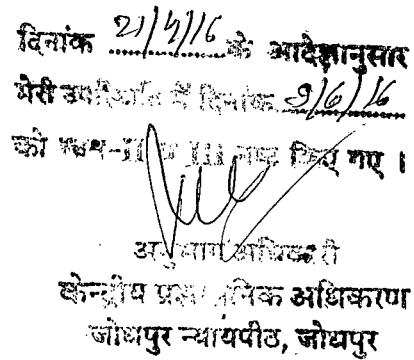 दिनांक 21/4/16 के आदेशानुसार
मेरी उपस्थिति में दिनांक 2/6/16
को भाग-II व III नष्ट किए गए ।
अनुभाग अधिकारी
केन्द्रीय प्रशासनिक अधिकरण
जोधपुर न्यायपीठ, जोधपुर